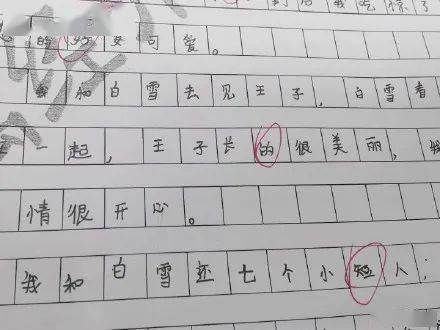 到后我吃惊了
的好妥可爱。
我和白雪去见王子，白雪看
一起，王子长的很美丽，
情很开心。
我和白雪还七个小短人；